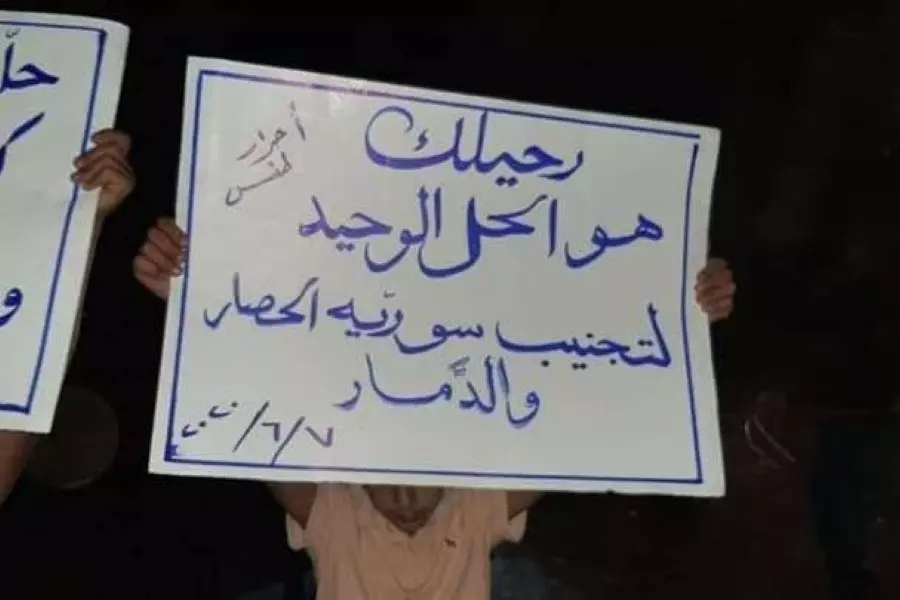 أحرار
طفس
رحيلك
هو الحل الوحيد
لتجنيب سوريّه الحصار
والدَّمار
٧/٦/٢٠٢٠
حلّ
و